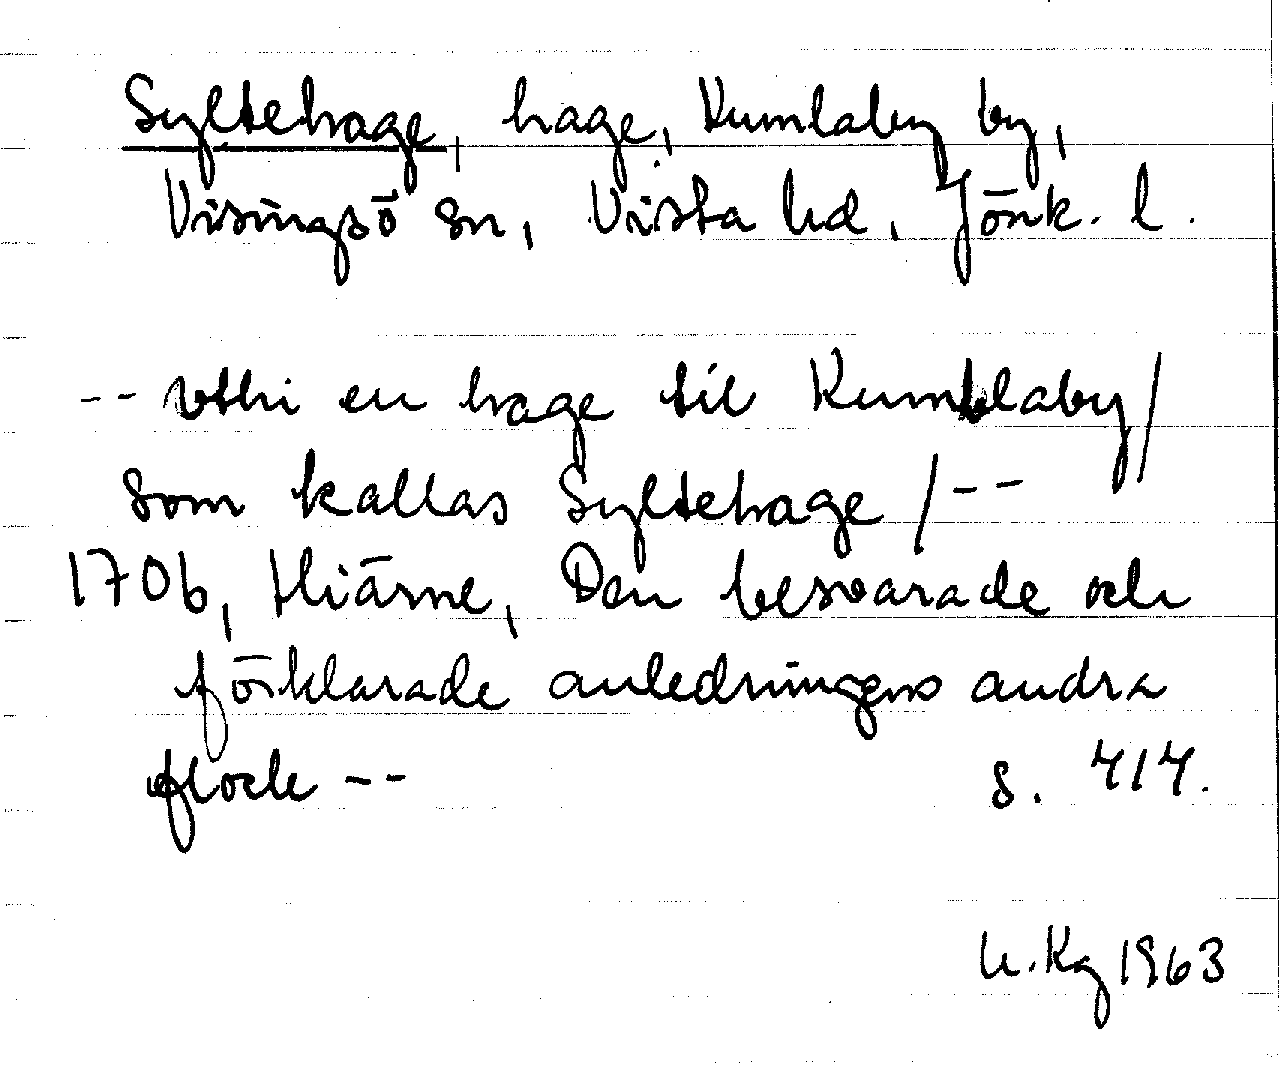 Syltehage, hage, Kumlaby by,
Visingsö sn, Vista hd, Jönk. l.
-- vthi en hage til Kumblaby/
som kallas Syltehage /--
1706, Hiärne, Den besvarade och
förklarade anledningens andra
flock -- s. 414.
U.Kg 1963